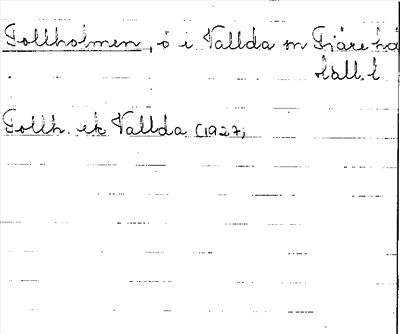 Tollholmen, ö i Vallda sn Fjäre hd
Hall. l
Tollh. ek Vallda (1927)